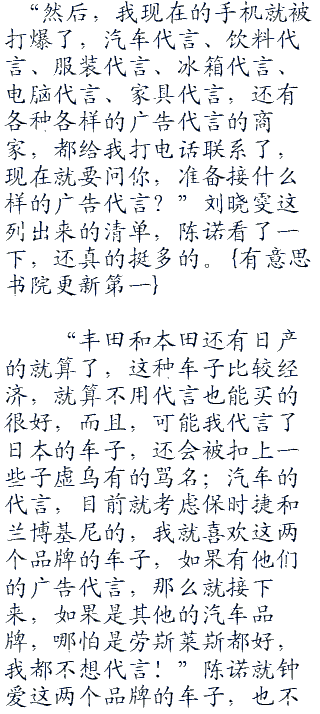 “然后，我现在的手机就被
打爆了，汽车代言、饮料代
言、服装代言、冰箱代言、
电脑代言、家具代言，还有
各种各样的广告代言的商
家，都给我打电话联系了，
现在就要问你，准备接什么
样的广告代言？”刘晓雯这
列出来的清单，陈诺看了一
下，还真的挺多的。{有意思
书院更新第一}
“丰田和本田还有日产
的就算了，这种车子比较经
济，就算不用代言也能买的
很好，而且，可能我代言了
日本的车子，还会被扣上一
些子虚乌有的骂名；汽车的
代言，目前就考虑保时捷和
兰博基尼的，我就喜欢这两
个品牌的车子，如果有他们
的广告代言，那么就接下
来，如果是其他的汽车品
牌，哪怕是劳斯莱斯都好，
我都不想代言！”陈诺就钟
爱这两个品牌的车子，也不